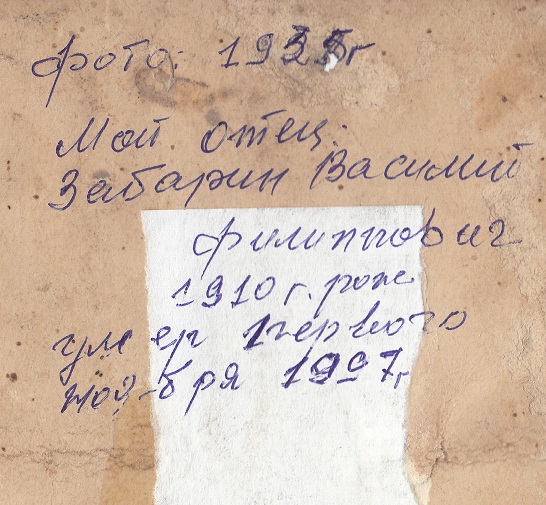 фото: 1935г
Мой отец:
Забарин Василий
Филиппович
1910 г. рож
умер 1 первого
ноя-бря 1997г